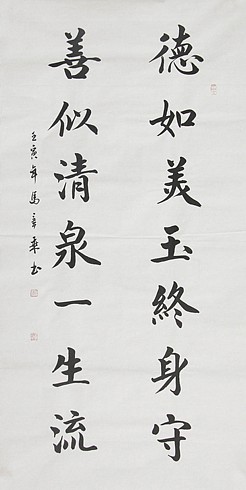 德如美玉終身守
善似清泉一生流
壬寅年馬辛乘书